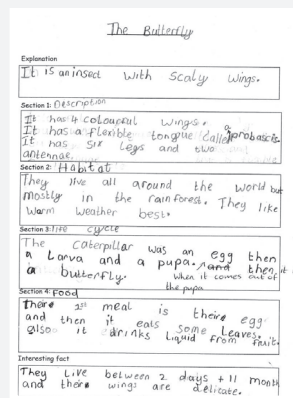 The Butterfly
Explanation
It is an insect with scaly wings.
Section 1: Description
It has 4 colourful wings.
It has a flexible tongue called a probascis.
It has six legs and two
antennae.
Section 2: Habitat
They live all around the world but
mostly in the rainforest. They like
warm weather best.
Section 3: life cycle
The caterpillar was an egg then
a Larva and a pupa. and then, it
a butterfly. when it comes out of
the pupa
Section 4: Food
Theire 1st meal is theire egg
and then it eats some leaves.
also it drinks liquid from fruit.
Interesting fact
They live between 2 days + 11 month
and theire wings are delicate.